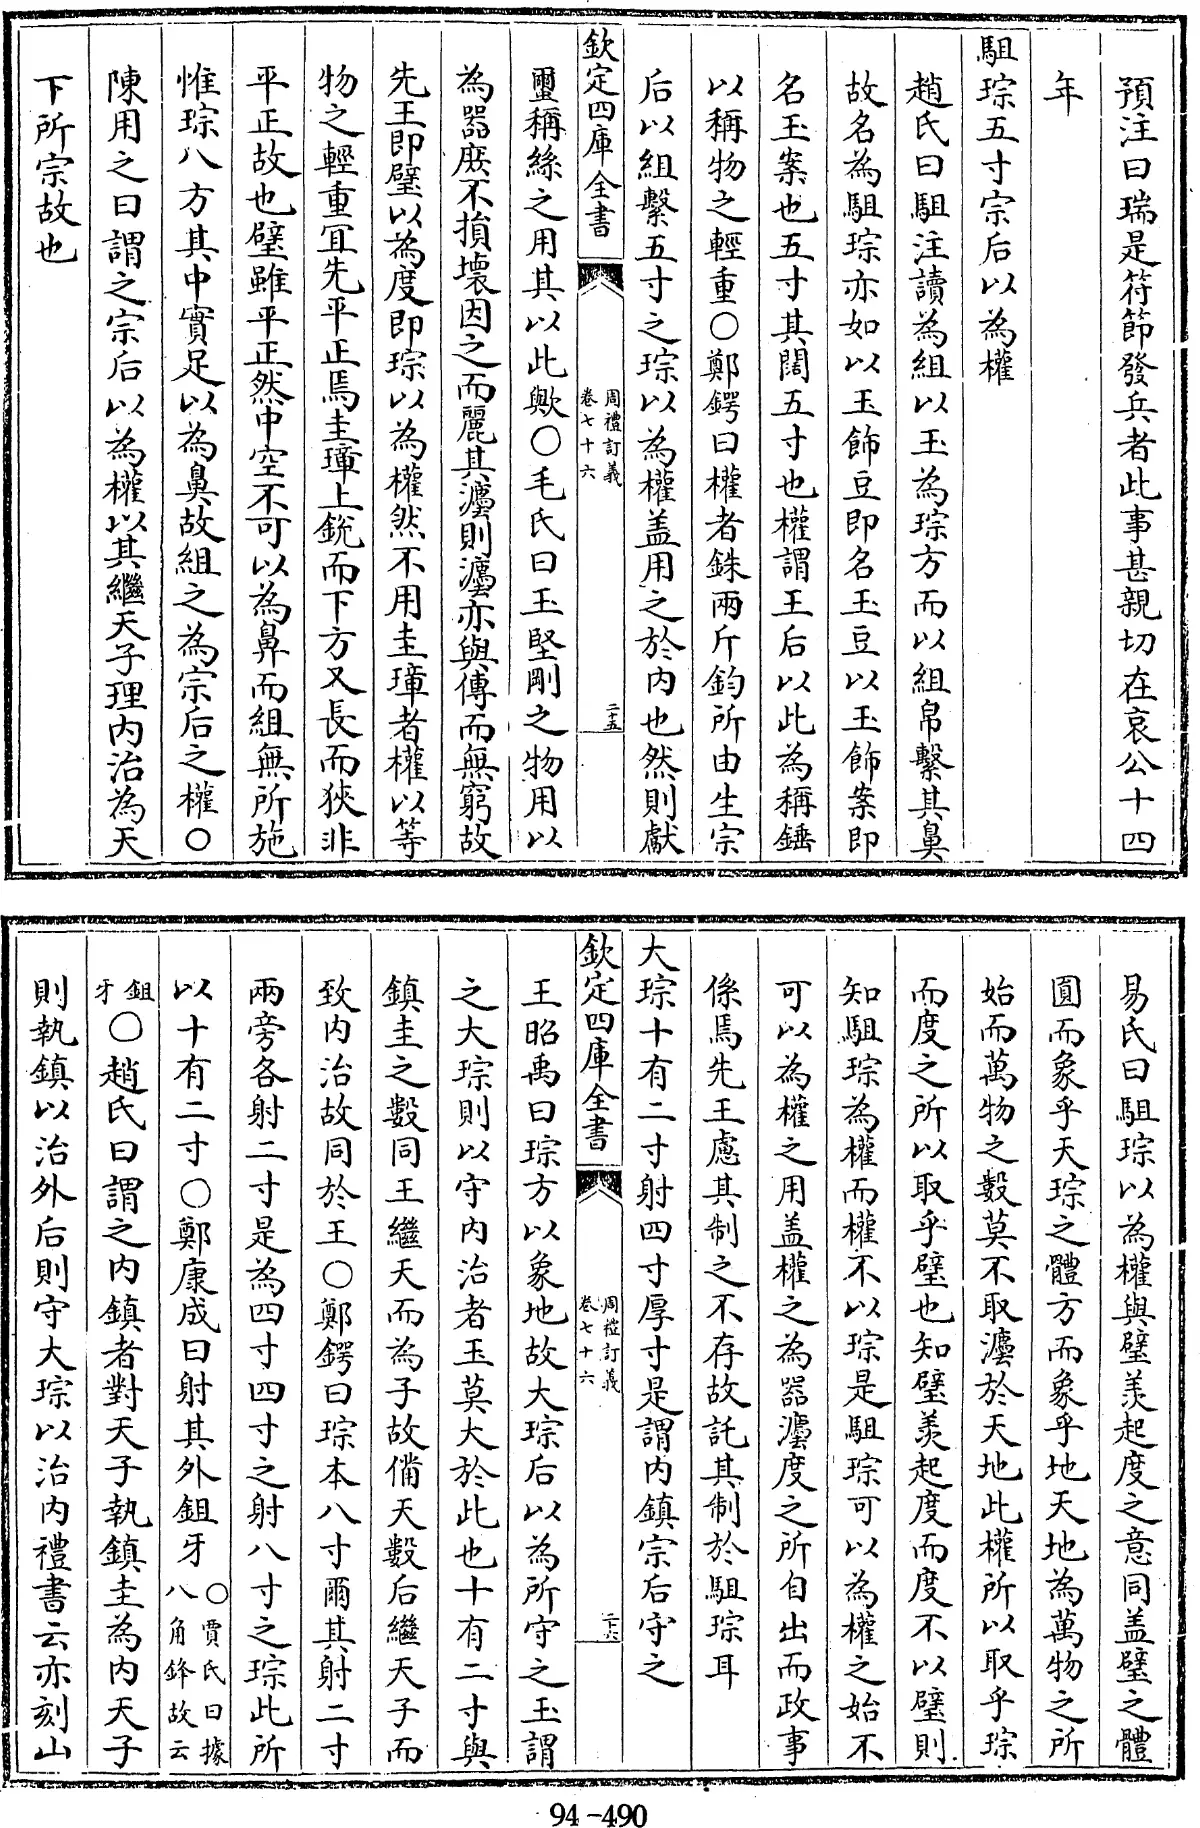 預注曰瑞是符節發兵者此事甚親切在哀公十四
年
駔琮五寸宗后以為權
趙氏曰駔注讀為組以玉為琮方而以組帛繫其鼻
故名為駔琮亦如以玉飾豆即名玉豆以玉飾案即
名玉案也五寸其闊五寸也權謂王后以此為稱錘
以稱物之輕重〇鄭鍔曰權者銖兩斤鈞所由生宗
后以組繫五寸之琮以為權盖用之於内也然則獻
欽定四庫全書
周禮訂義
卷七十六
二十五
璽稱絲之用其以此歟〇毛氏曰玉堅剛之物用以
為器庶不損壞因之而麗其灋則灋亦與傳而無窮故
先王即璧以為度即琮以為權然不用圭璋者權以等
物之輕重宜先平正焉圭璋上銳而下方又長而狹非
平正故也璧雖平正然中空不可以為鼻而組無所施
惟琮八方其中實足以為鼻故組之為宗后之權〇
陳用之曰謂之宗后以為權以其繼天子理内治為天
下所宗故也
易氏曰駔琮以為權與璧羨起度之意同盖璧之體
圓而象乎天琮之體方而象乎地天地為萬物之所
始而萬物之數莫不取灋於天地此權所以取乎琮
而度之所以取乎璧也知璧羨起度而度不以璧則
知駔琮為權而權不以琮是駔琮可以為權之始不
可以為權之用盖權之為器灋度之所自出而政事
係焉先王慮其制之不存故託其制於駔琮耳
大琮十有二寸射四寸厚寸是謂内鎮宗后守之
欽定四庫全書
周禮訂義
卷七十六
二十六
王昭禹曰琮方以象地故大琮后以為所守之玉謂
之大琮則以守内治者玉莫大於此也十有二寸與
鎮圭之數同王繼天而為子故備天數后繼天子而
致内治故同於王〇鄭鍔曰琮本八寸爾其射二寸
兩旁各射二寸是為四寸四寸之射八寸之琮此所
以十有二寸〇鄭康成曰射其外鉏牙〇賈氏曰據八角鋒故云
鉏牙〇趙氏曰謂之内鎮者對天子執鎮圭為内天子
則執鎮以治外后則守大琮以治内禮書云亦刻山
94-490